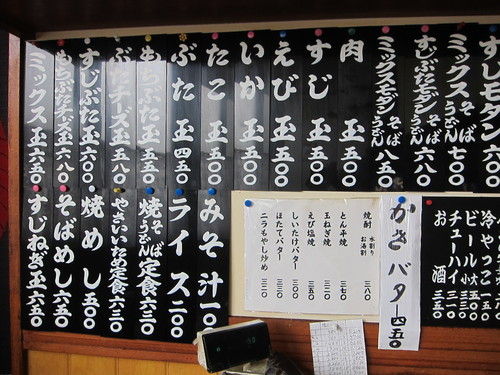 すじモダン
ミックスそばうどん 七〇〇
すじぶたモダンそばうどん 六八〇
ミックスモダンそばうどん 八五〇
肉 玉 五〇〇
すじ 玉 五〇〇
えび 玉 五〇〇
いか 玉 五〇〇
たこ 玉 五〇〇
ぶた 玉 四五〇
もちぶた玉 五五〇
ぶたチーズ玉 五八〇
すじぶた玉 六〇〇
もちぶたチーズ玉 六八〇
ミックス玉 六五〇
冷やっこ
ビール 大 小
チューハイ 三五〇
お酒
かきバター 四五〇
焼酎 水割り お湯割 三八〇
とん平焼 三七〇
玉ねぎ焼
えび塩焼
しいたけバター
ほたてバター
ニラもやし炒め
みそ汁 一〇〇
ライス 二〇〇
焼そばうどん定食 六三〇
やさいいため定食 六三〇
焼めし 五〇〇
そばめし 五五〇
すじねぎ玉 六五〇